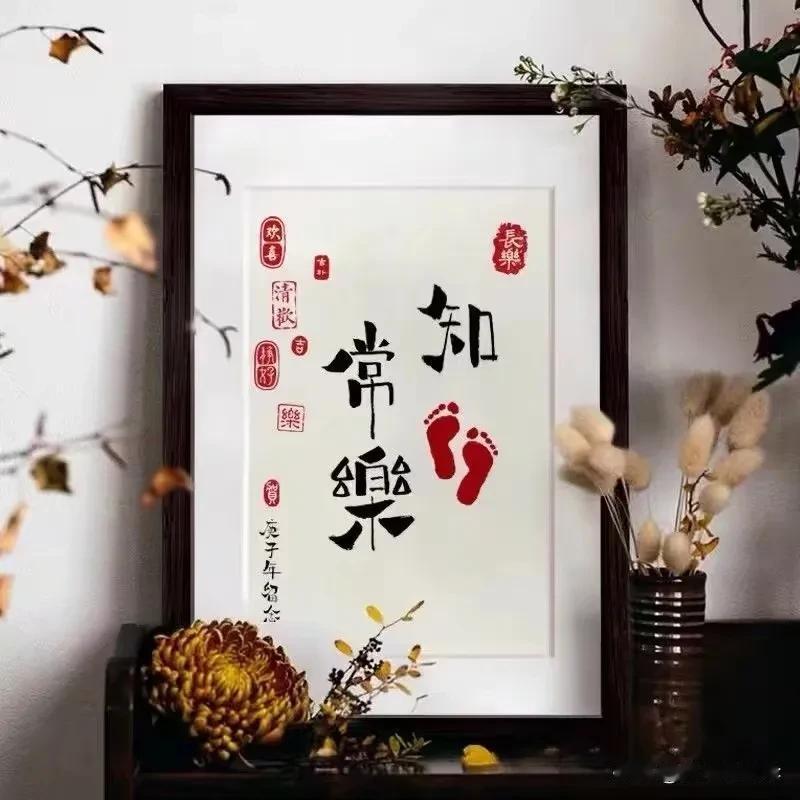 長樂
知
常樂
欢喜
清歡
吉
樂
賀
庚子年留念